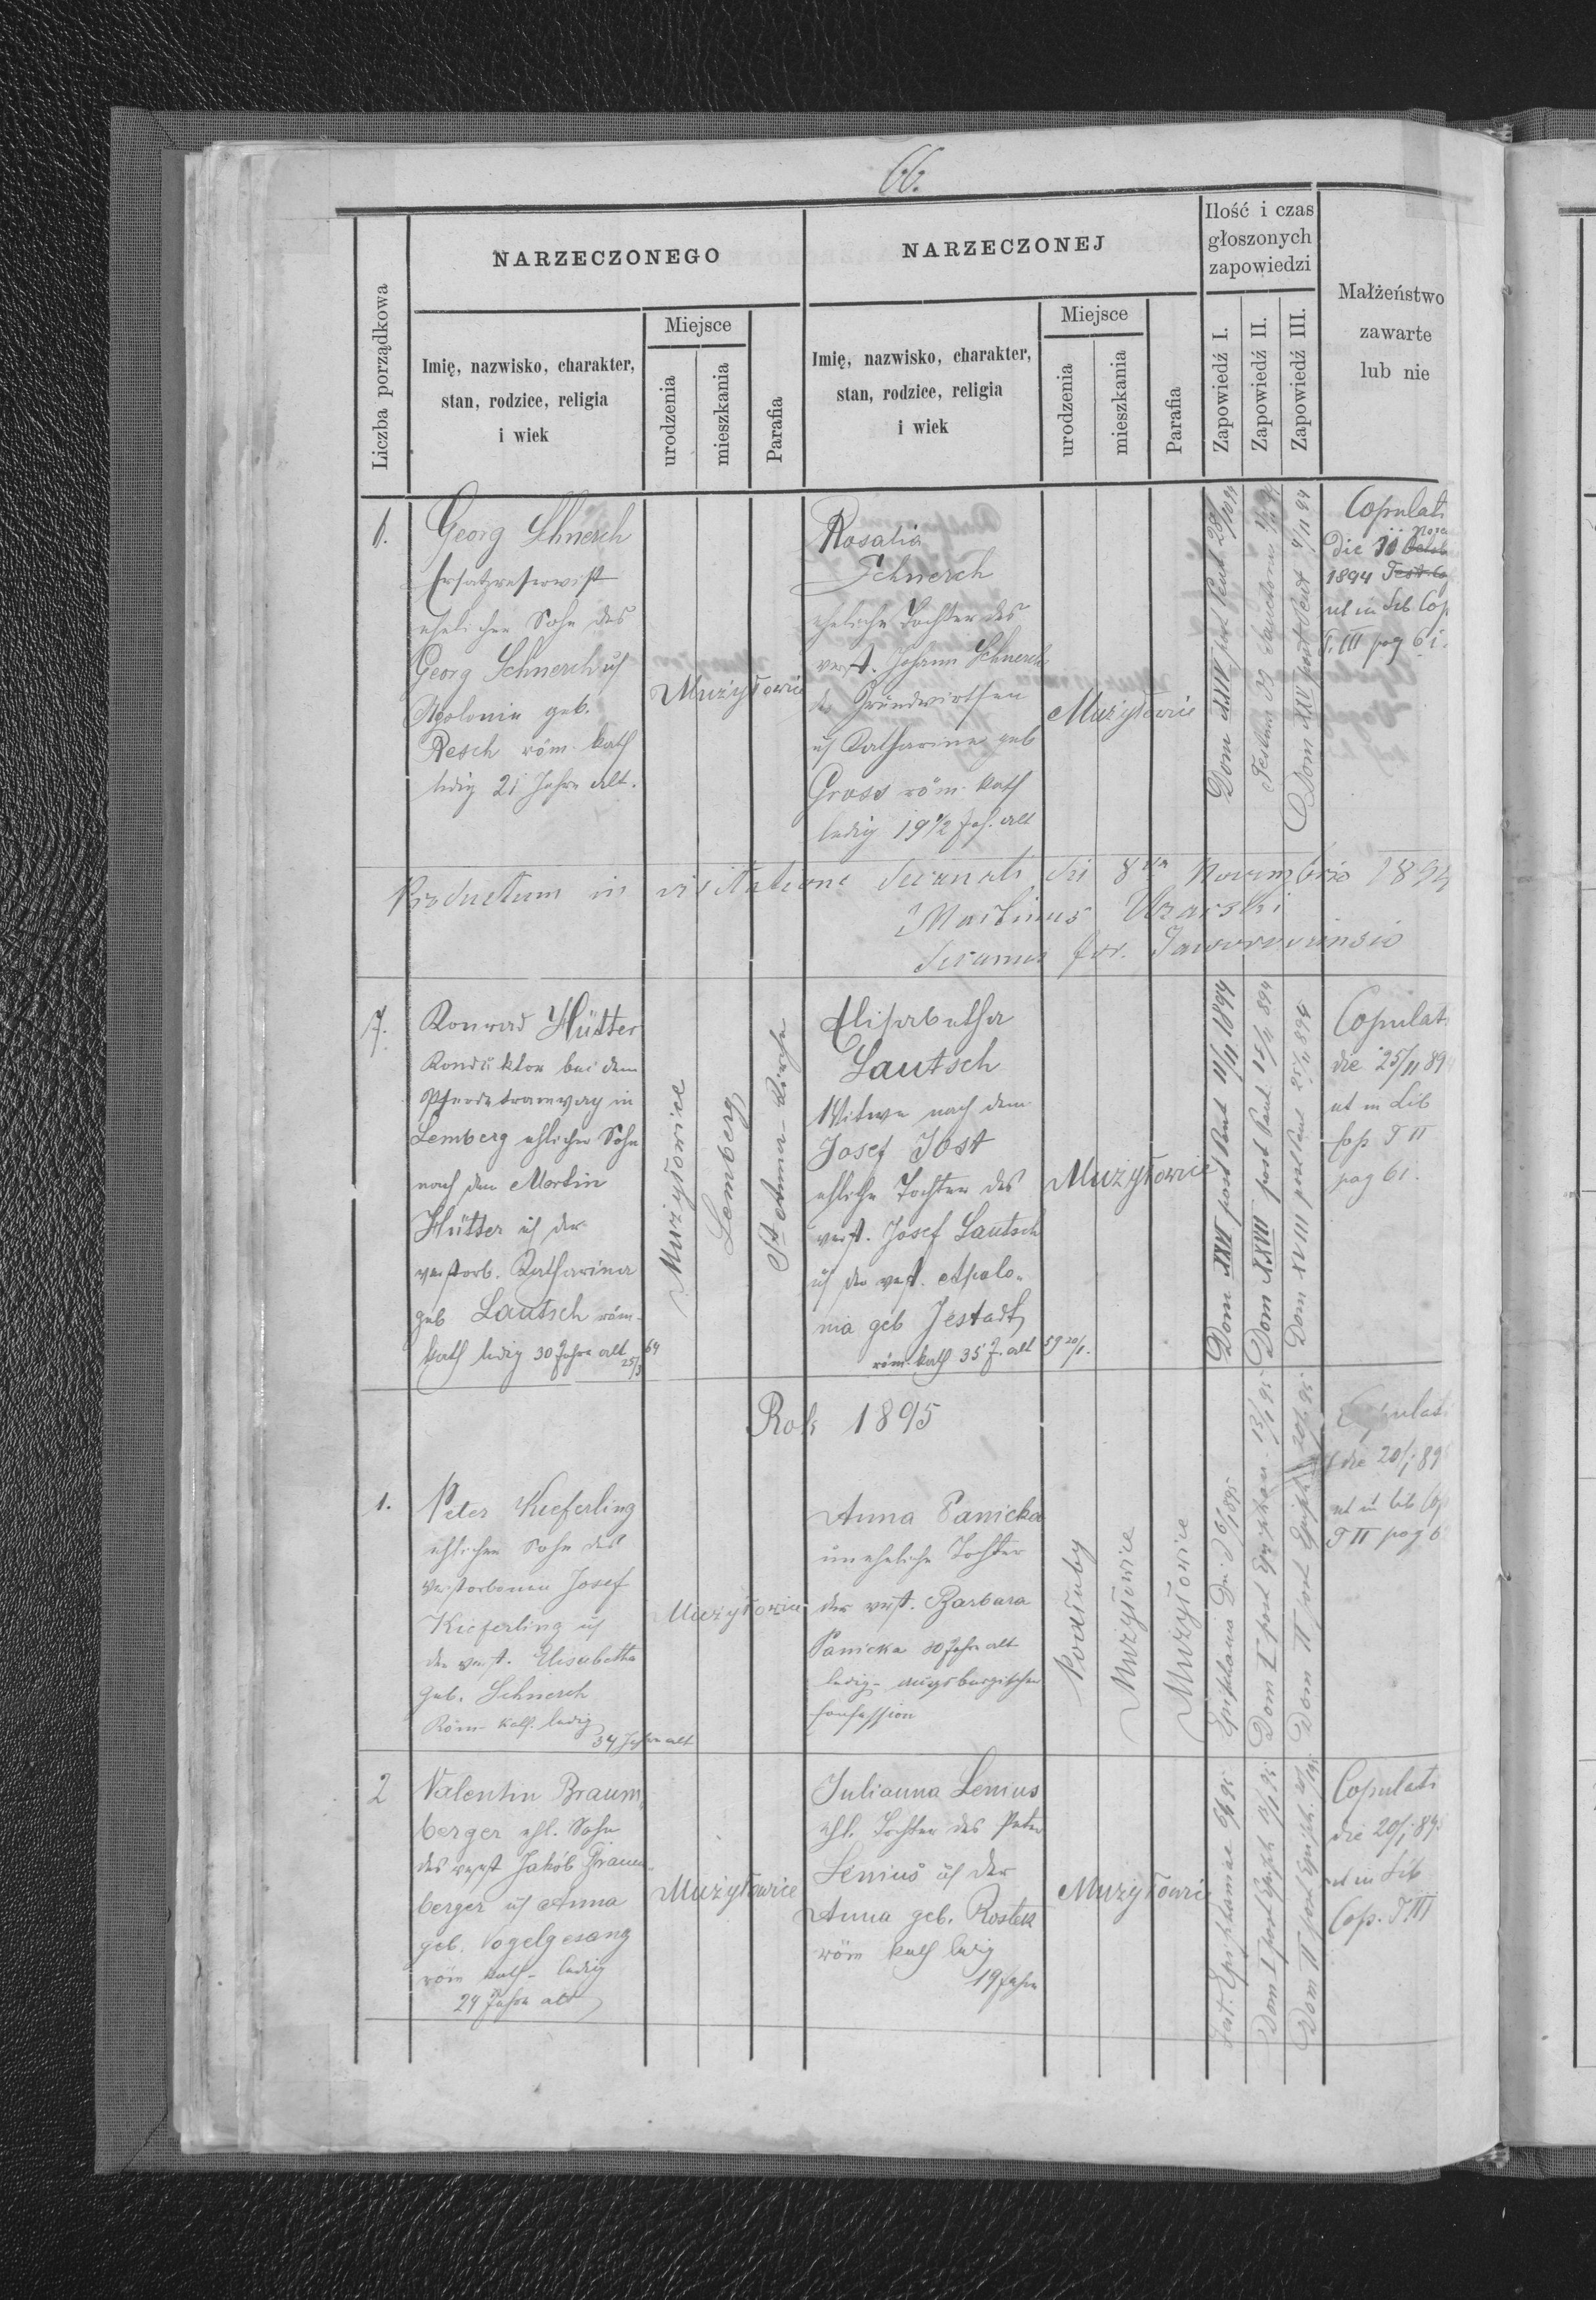 66.
Liczba porządkowa
NARZECZONEGO
Imię, nazwisko, charakter,
stan, rodzice, religia
i wiek
Miejsce
urodzenia
mieszkania
Parafia
NARZECZONEJ
Imię, nazwisko, charakter,
stan, rodzice, religia
i wiek
Miejsce
urodzenia
mieszkania
Parafia
Ilość i czas
głoszonych
zapowiedzi
Zapowiedź I.
Zapowiedź II.
Zapowiedź III.
Małżeństwo
zawarte
lub nie
6.
Georg Schnerch
Ersatzreservist
ehelicher Sohn des
Georg Schnerch u
Apolonia geb.
Resch röm. kath
ledig 21 Jahre alt.
Mużyłowice
Rosalia
Schnerch
eheliche Tochter des
verst. Johann Schnerch
des Grundwirthen
u Katharina geb
Gross röm. kath
ledig 19 1/2 Jah. alt
Mużyłowice
Dom XXIV post Pent 28/10 94
Festum OO Sanctorum
Dom XXV post Pent 4/11 94
Copulati
Die
1894
ut in Lib Cop
T. III pag 61.
Productum in visitatione decanali die 8va Novembris 1894
Martinus
decanus for. Jaworoviensis
7.
Konrad Hütter
Konduktor bei dem
Pferdetramway in
Lemberg ehlicher Sohn
nach dem Martin
Hütter u der
verstorb. Katharina
geb Lautsch röm.
kath ledig 30 Jahre alt
25/3 64
Mużyłowice
Lemberg
St Anna-Kirche
Elisabetha
Lautsch
Witwe nach dem
Josef Jost
ehliche Tochter des
verst. Josef Lautsch
u der verst. Apolo-
nia geb Jestadt
röm. kath 35 J. alt 59 20/1.
Mużyłowice
Dom XXVI post Pent 11/11 1894
Dom XXVII post Pent 18/11 894
Dom XVIII post Pent 25/11 894
Copulati
die 25/11 89
ut in Lib
Cop T II
pag 61.
Rok 1895
1.
Peter Kieferling
ehlicher Sohn des
verstorbenen Josef
Kieferling u
der verst. Elisabetha
geb. Schnerch
Röm-kath. ledig
34 Jahre alt
Mużyłowice
Anna Panicka
uneheliche Tochter
der verst. Barbara
Panicka 30 Jahre alt
ledig- augsburgischer
Confession
Podłuby
Mużyłowice
Mużyłowice
Epiphania Dni 6/1 1895
Dom I post Epiphan. 13/1 95
Dom II post Epiph 20/1 95
Copulati
die 20/1 89
ut in lib Cop
T II pag 6
2
Valentin Braum-
berger ehl. Sohn
des verst Jakob Braum-
berger u Anna
geb. Vogelgesang
röm kath- ledig
24 Jahre alt
Mużyłowice
Julianna Lenius
ehl. Tochter des Peter
Lenius u der
Anna geb. Rostek
röm kath ledig
19 Jahre
Mużyłowice
Fest. Epiphaniae 6/1 95
Dom I post Epiph 13/1 95
Dom II post Epiph. 20/1 95
Copulati
die 20/1 895
ut in Lib
Cop. T III